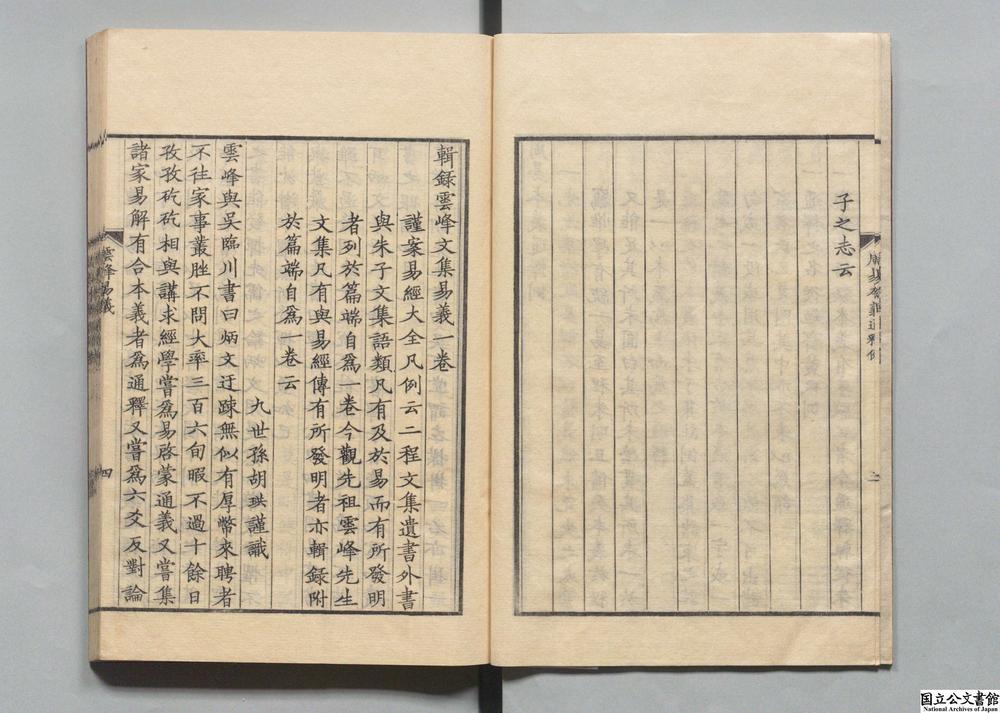 子之志云
周易本義通釋例
二
輯録雲峰文集易義一卷
謹案易經大全凡例云二程文集遺書外書
與朱子文集語類凡有及於易而有所發明
者列於篇端自爲一卷今觀先祖雲峰先生
文集凡有與易經傳有所發明者亦輯録附
於篇端自爲一卷云
九世孫胡珙謹識
雲峰與吳臨川書曰炳文迂踈無似有厚幣來聘者
不往家事叢脞不問大率三百六旬暇不過十餘日
孜孜矻矻相與講求經學嘗爲易啓蒙通義又嘗集
諸家易解有合本義者爲通釋又嘗爲六爻反對論
雲峰易義
四
国立公文書館
National Archives of Japan